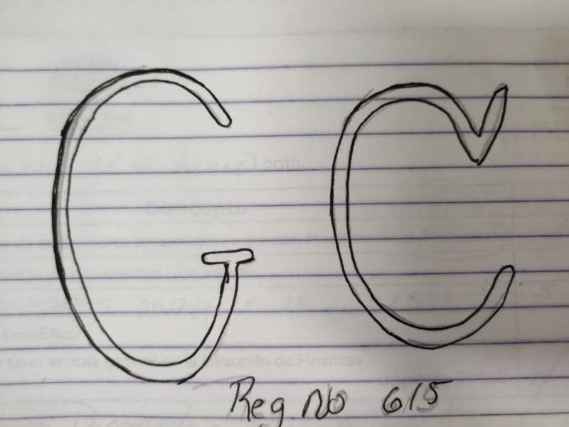 G C
Reg No 615